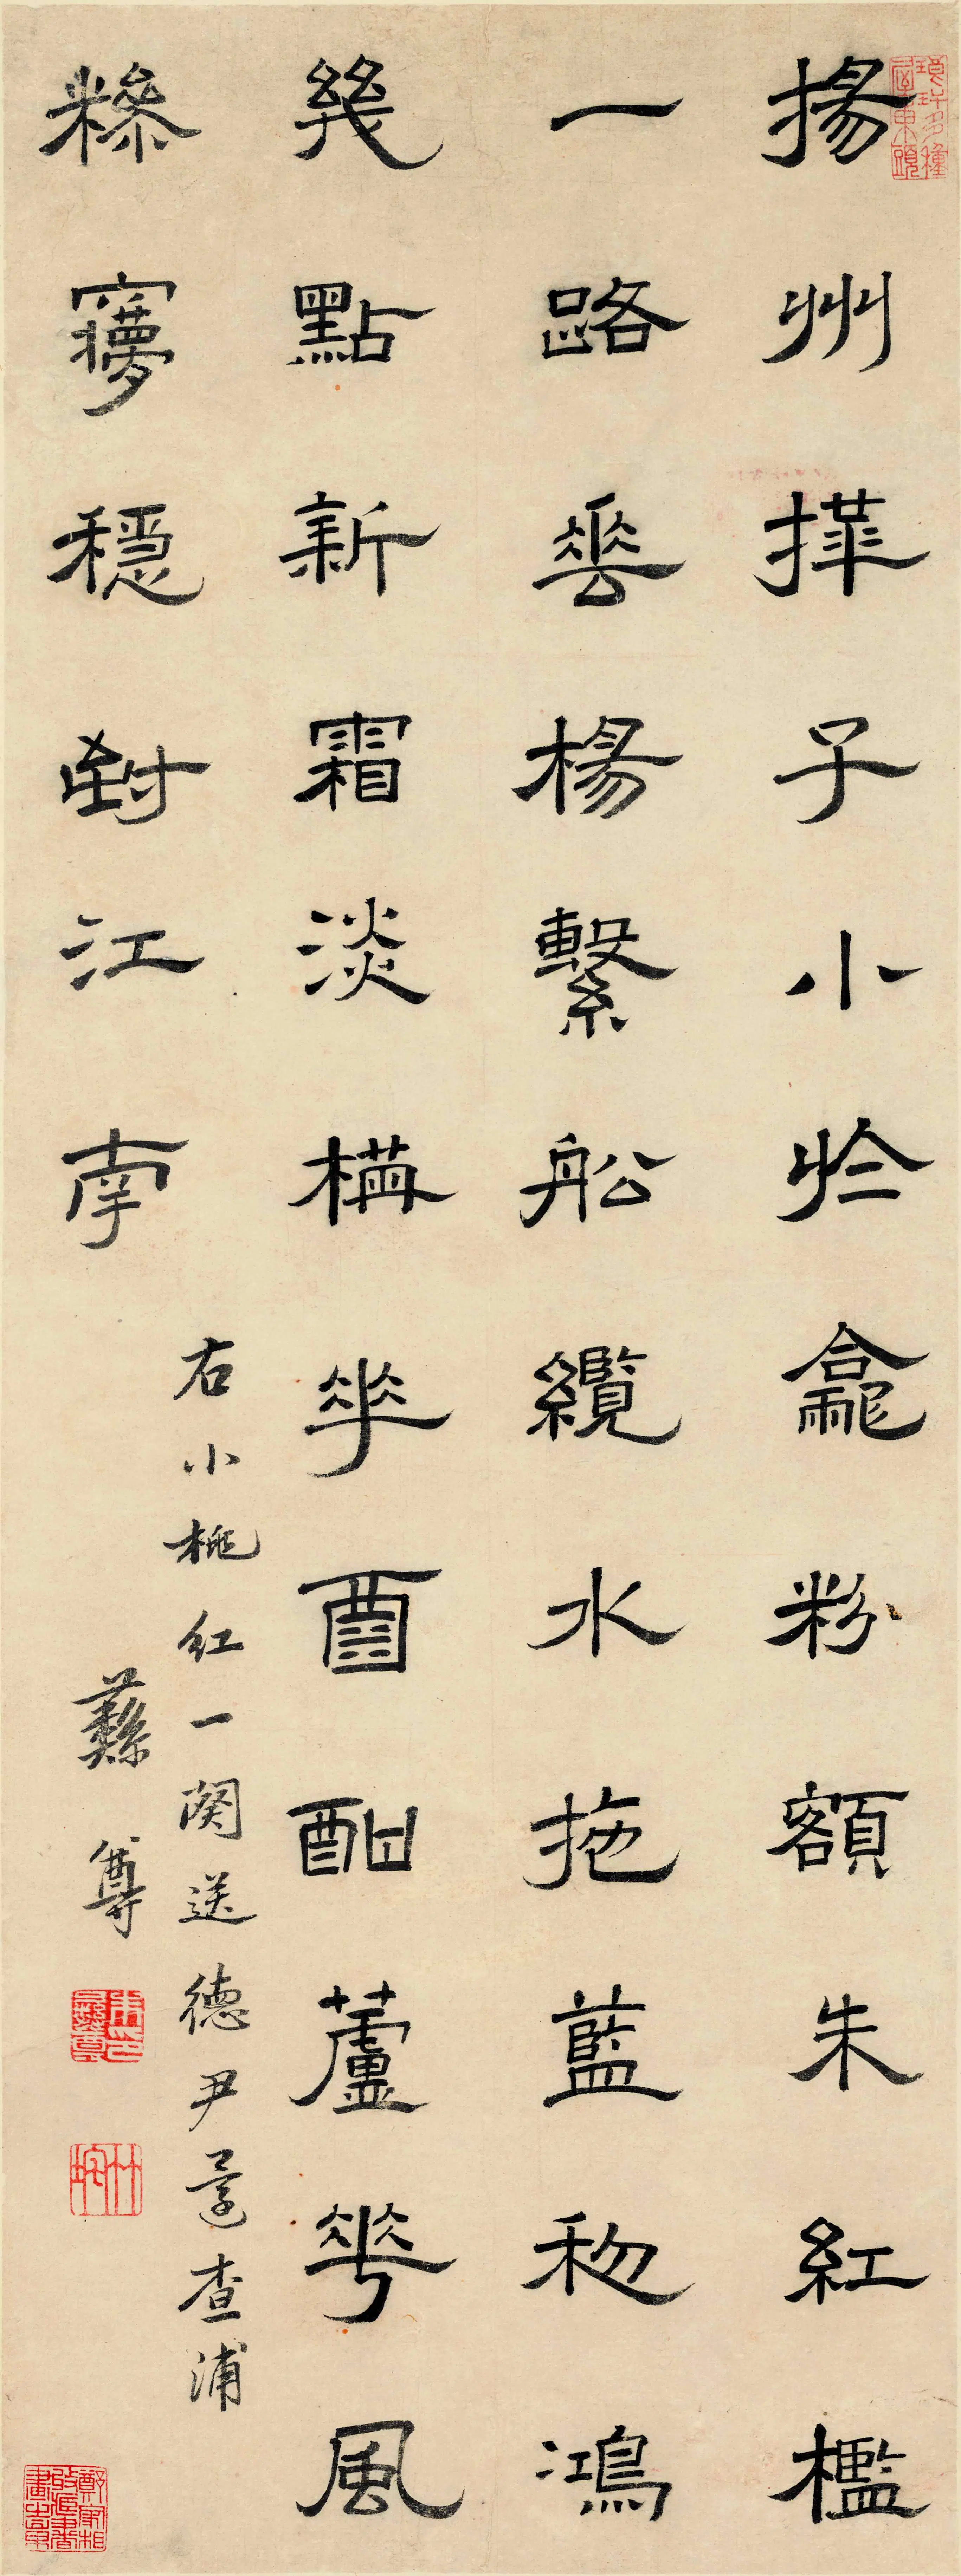 揚州撶子小於龕粉額朱紅檻
一路垂楊繫船纜水拖藍初鴻
幾點新霜淡構花面酣蘆花風
糝㝱穩對江南
右小桃紅一闋送德尹還查浦
彝尊